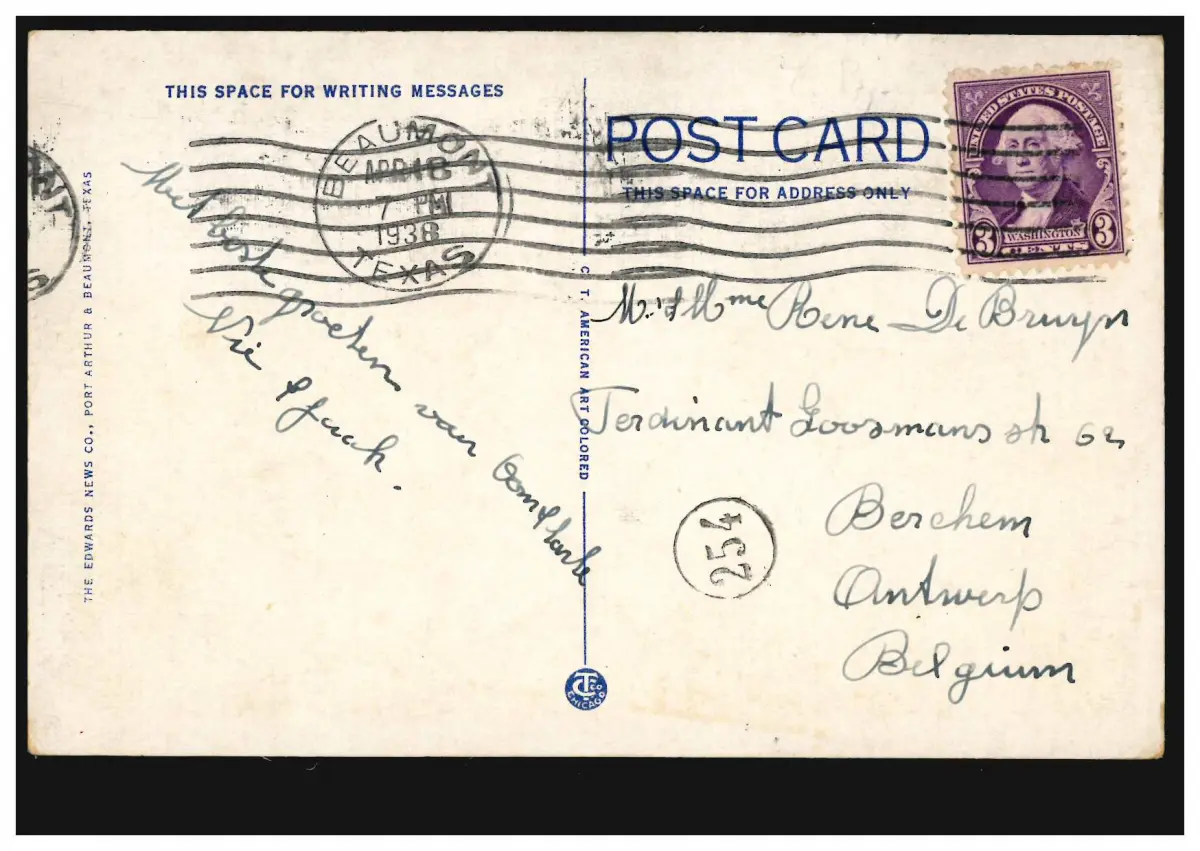 THIS SPACE FOR WRITING MESSAGES
POST CARD
THIS SPACE FOR ADDRESS ONLY
UNITED STATES POSTAGE
3 WASHINGTON 3
CENTS
BEAUMONT
APR 18
7 PM
1938
TEXAS
THE EDWARDS NEWS CO., PORT ARTHUR & BEAUMONT, TEXAS
C. T. AMERICAN ART COLORED
Met beste groeten van
& Jaak.
M. & Mme Rene De Bruyn
Ferdinant Goosmans str 62
Berchem
Antwerp
Belgium
254
CT CO
CHICAGO